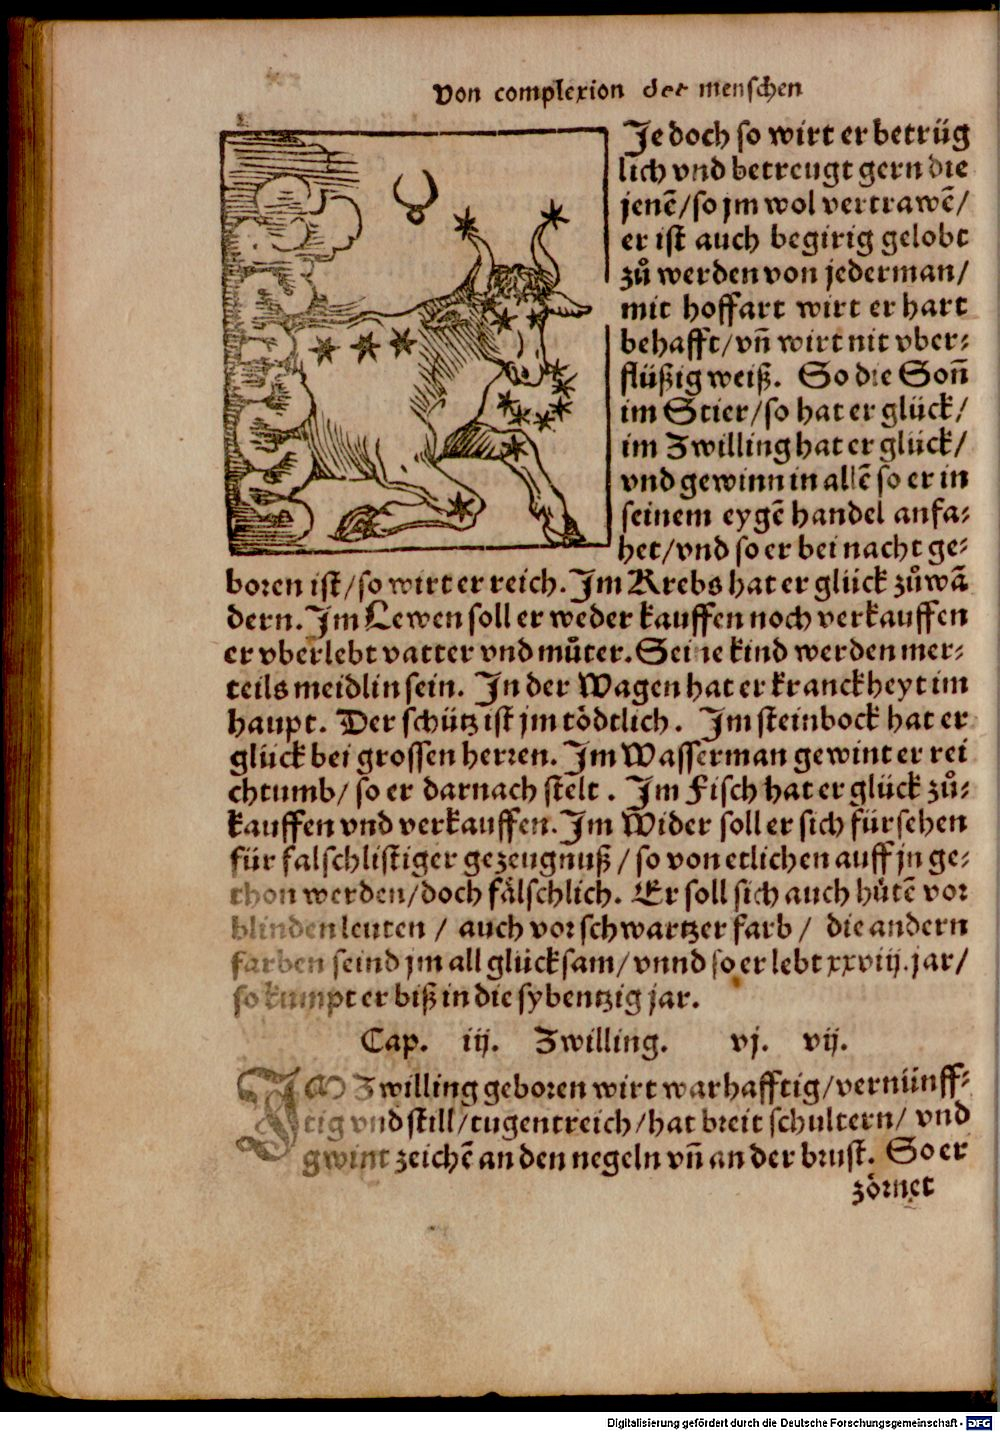 Von complexion der menschen
Je doch so wirt er betrüg
lich vnd betreugt gern die
jenē/so jm wol vertrawē/
er ist auch begirig gelobt
zů werden von jederman/
mit hoffart wirt er hart
behafft/vñ wirt nit vber⸗
flüßig weiß. So die Soñ
im Stier/so hat er glück/
im Zwilling hat er glück/
vnd gewinn in allē so er in
seinem eygē handel anfa⸗
het/vnd so er bei nacht ge⸗
boren ist/so wirt er reich. Jm Krebs hat er glück zůwā
dern. Jm Lewen soll er weder kauffen noch verkauffen
er vberlebt vatter vnd můter. Seine kind werden mer⸗
teils meidlin sein. Jn der Wagen hat er kranckheyt im
haupt. Der schütz ist jm tödtlich. Jm steinbock hat er
glück bei grossen herren. Jm Wasserman gewint er rei
chtumb/ so er darnach stelt. Jm Fisch hat er glück zů⸗
kauffen vnd verkauffen. Jm Wider soll er sich fürsehen
für falschlistiger gezeugnuß/ so von etlichen auff jn ge⸗
thon werden/doch fälschlich. Er soll sich auch hütē vor
blinden leuten/ auch vor schwartzer farb/ die andern
farben seind jm all glücksam/ vnnd so er lebt xxviij. jar/
so kumpt er biß in die sybentzig jar.
Cap. iij. Zwilling. vj. vij.
Jm Zwilling geboren wirt warhafftig/vernünff⸗
tig vnd still/tugentreich/hat breit schultern/ vnd
gwint zeichē an den negeln vñ an der brust. So er
zörnet
Digitalisierung gefördert durch die Deutsche Forschungsgemeinschaft - DFG